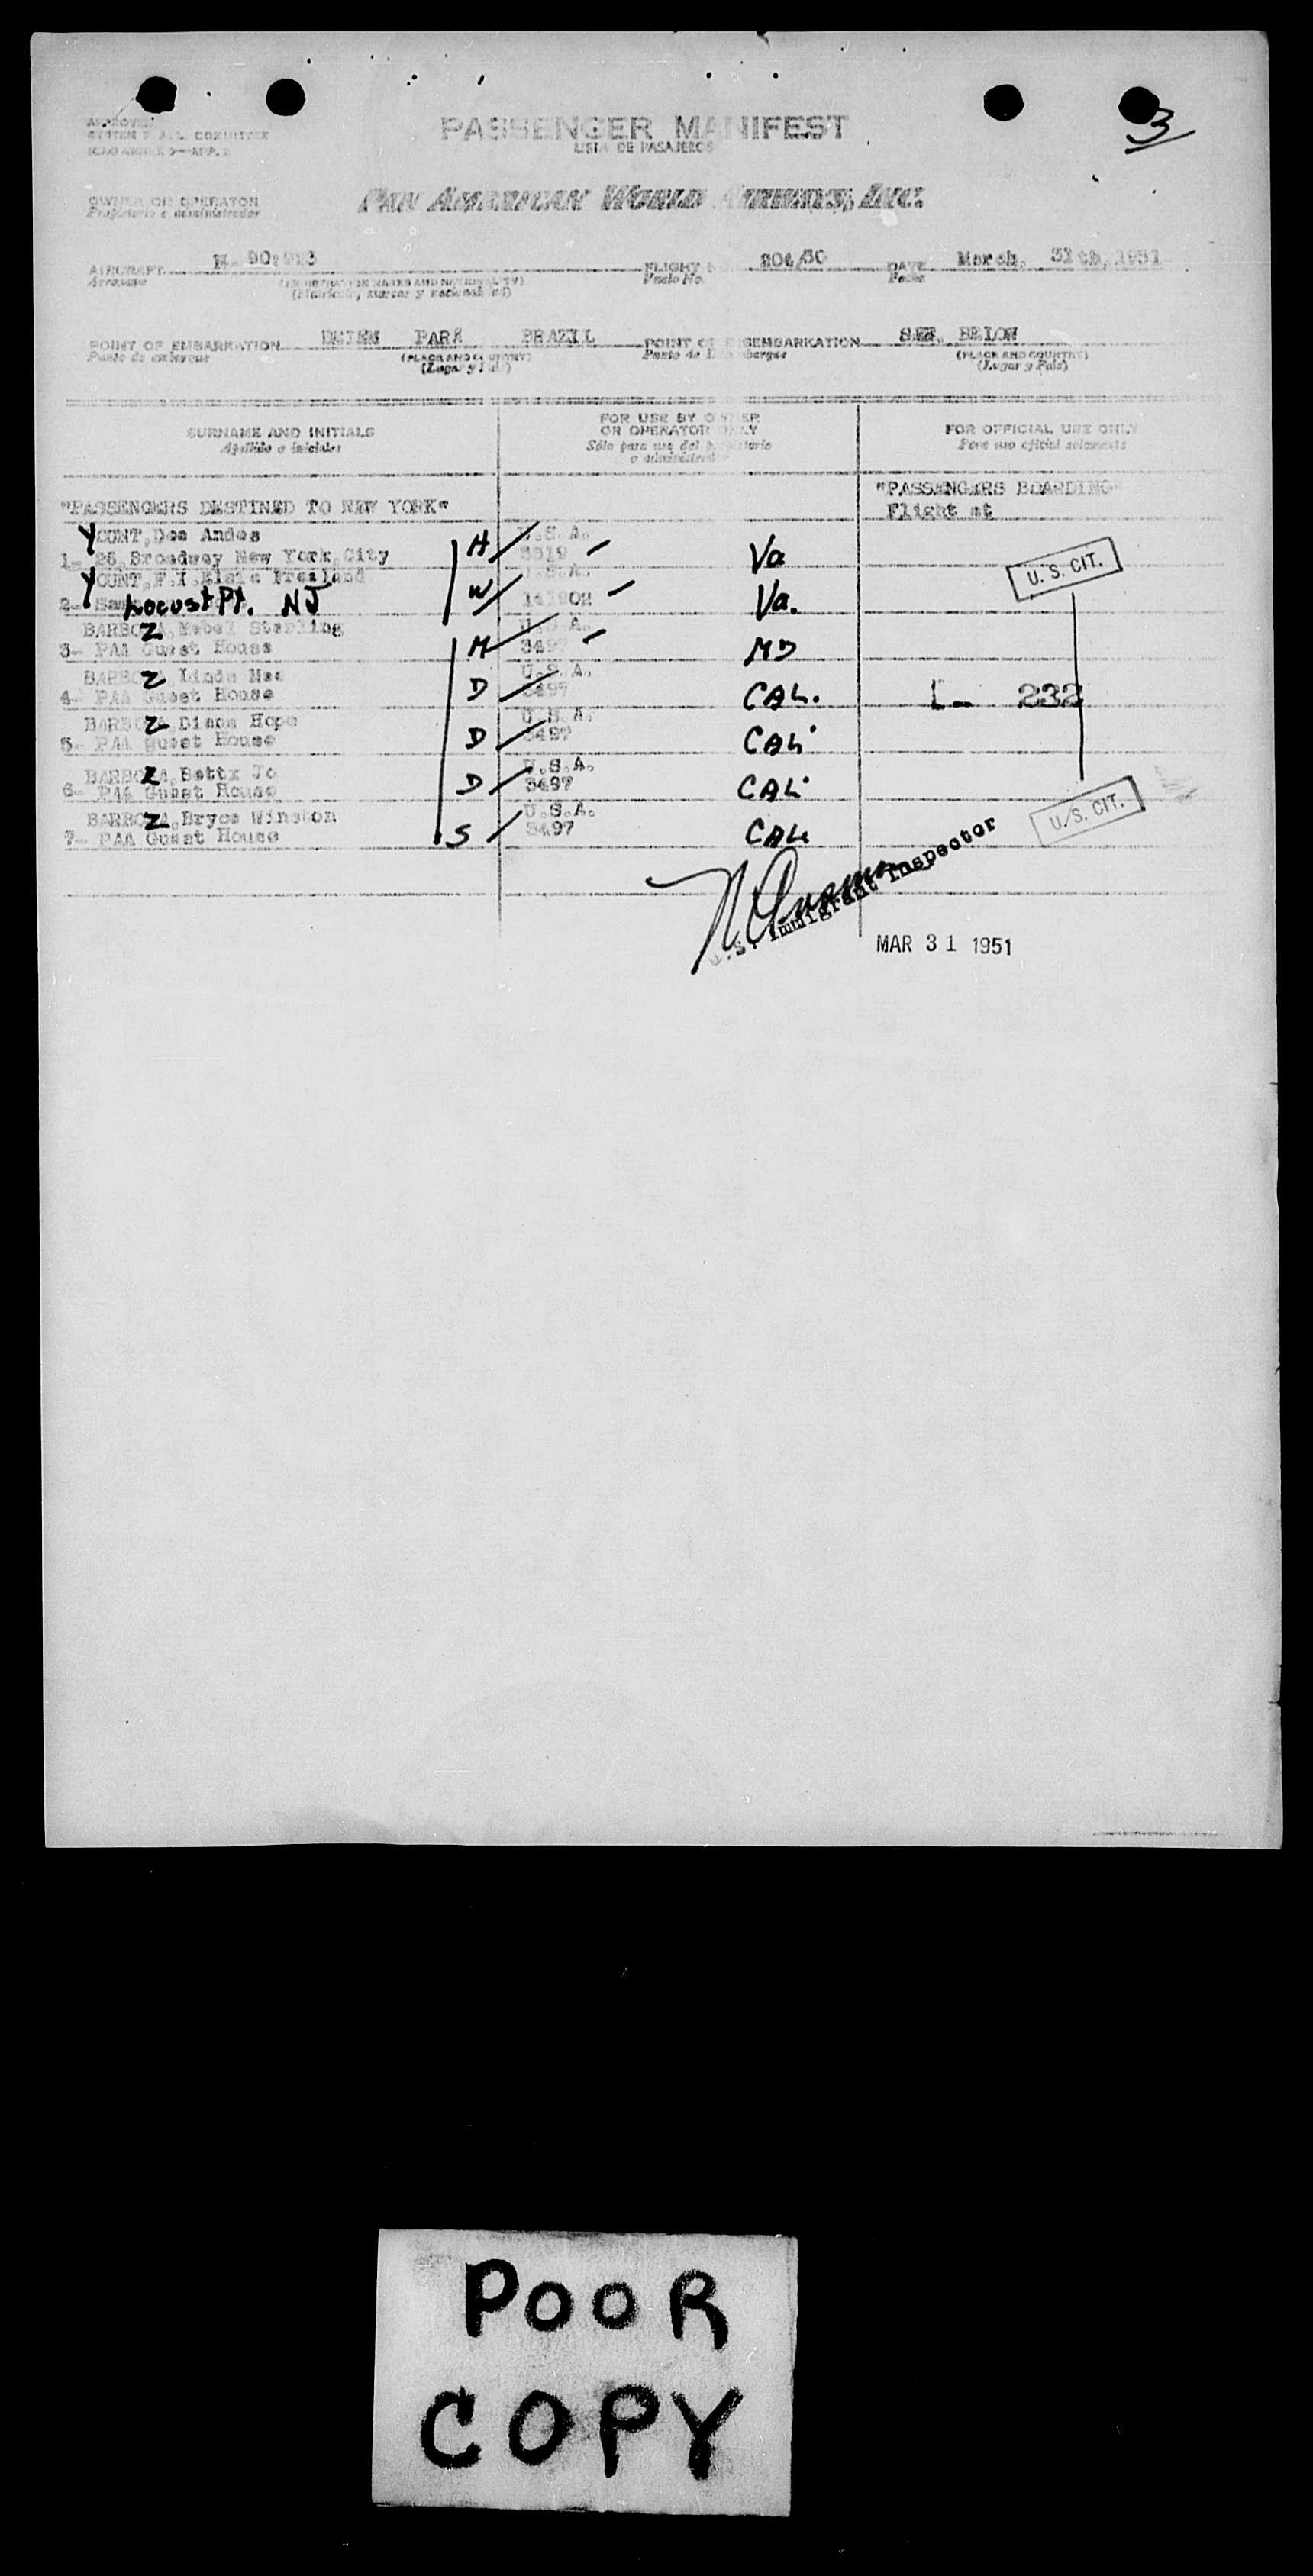 3
APPROVED
PASSENGER MANIFEST
LISTA DE PASAJEROS
OWNER OR OPERATOR
Propietario o administrador
PAN AMERICAN WORLD AIRWAYS, INC.
AIRCRAFT FLIGHT 204/30 DATE March, 31th, 1951
Aeronave Vuelo No. Fecha
(Matricula, marcas y nacionalidad)
POINT OF EMBARKATION BELEM PARÁ BRAZIL POINT OF DISEMBARKATION SEE, BELOW
Punto de embarque (PLACE AND COUNTRY) Punto de Desembarque (PLACE AND COUNTRY)
(Lugar y País) (Lugar y País)
SURNAME AND INITIALS FOR USE BY OWNER OR OPERATOR ONLY FOR OFFICIAL USE ONLY
Apellido e iniciales Sólo para uso del propietario o administrador Para uso oficial solamente
"PASSENGERS DESTINED TO NEW YORK" "PASSENGERS BOARDING
Flight at
YOUNT, Dee Andes H U.S.A.
1- 26, Broadway New York, City Va U. S. CIT.
YOUNT, F.I. Elsie Freeland W U.S.A.
2- Same Locust Pt. NJ Va.
BARBOZA, Mabel Sterling U.S.A.
3- PAA Guest House M 3497 MD
BARBOZA, Linda Mae U.S.A.
4- PAA Guest House D 3497 CAL. 1- 232
BARBOZA, Diana Hope U.S.A.
5- PAA Guest House D 3497 CAL
BARBOZA, Betty Jo U.S.A.
6- PAA Guest House D 3497 CAL
BARBOZA, Bryce Winston U.S.A.
7- PAA Guest House S 3497 CAL U. S. CIT.
U.S. Immigrant Inspector
MAR 31 1951
POOR
COPY